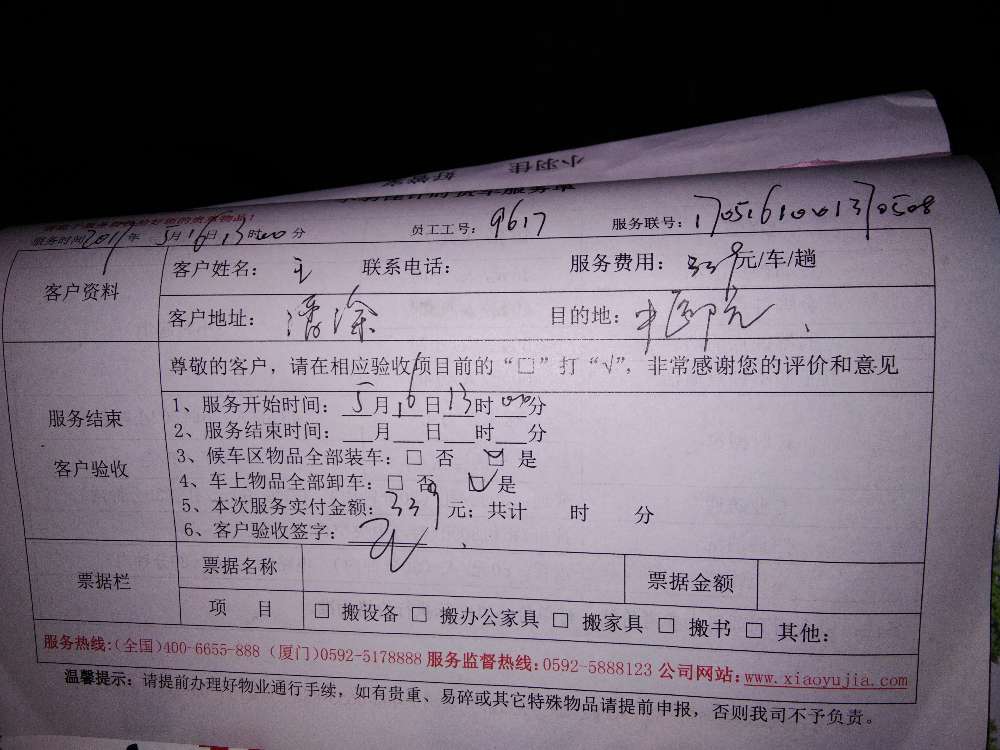 服务时间2017年5月16日13时00分 员工工号：9617 服务联号：1705161001370508
客户资料
客户姓名：王 联系电话： 服务费用：339元/车/趟
客户地址：潘涂 目的地：中医院
服务结束
客户验收
尊敬的客户，请在相应验收项目前的“□”打“√”，非常感谢您的评价和意见
1、服务开始时间：5月16日13时00分
2、服务结束时间：___月___日___时___分
3、候车区物品全部装车：□ 否 ☑ 是
4、车上物品全部卸车：□ 否 ☑ 是
5、本次服务实付金额：339元；共计 时 分
6、客户验收签字：王
票据栏 票据名称 票据金额
项 目 □ 搬设备 □ 搬办公家具 □ 搬家具 □ 搬书 □ 其他：
服务热线：(全国)400-6655-888 (厦门)0592-5178888 服务监督热线：0592-5888123 公司网站：www.xiaoyujia.com
温馨提示：请提前办理好物业通行手续，如有贵重、易碎或其它特殊物品请提前申报，否则我司不予负责。